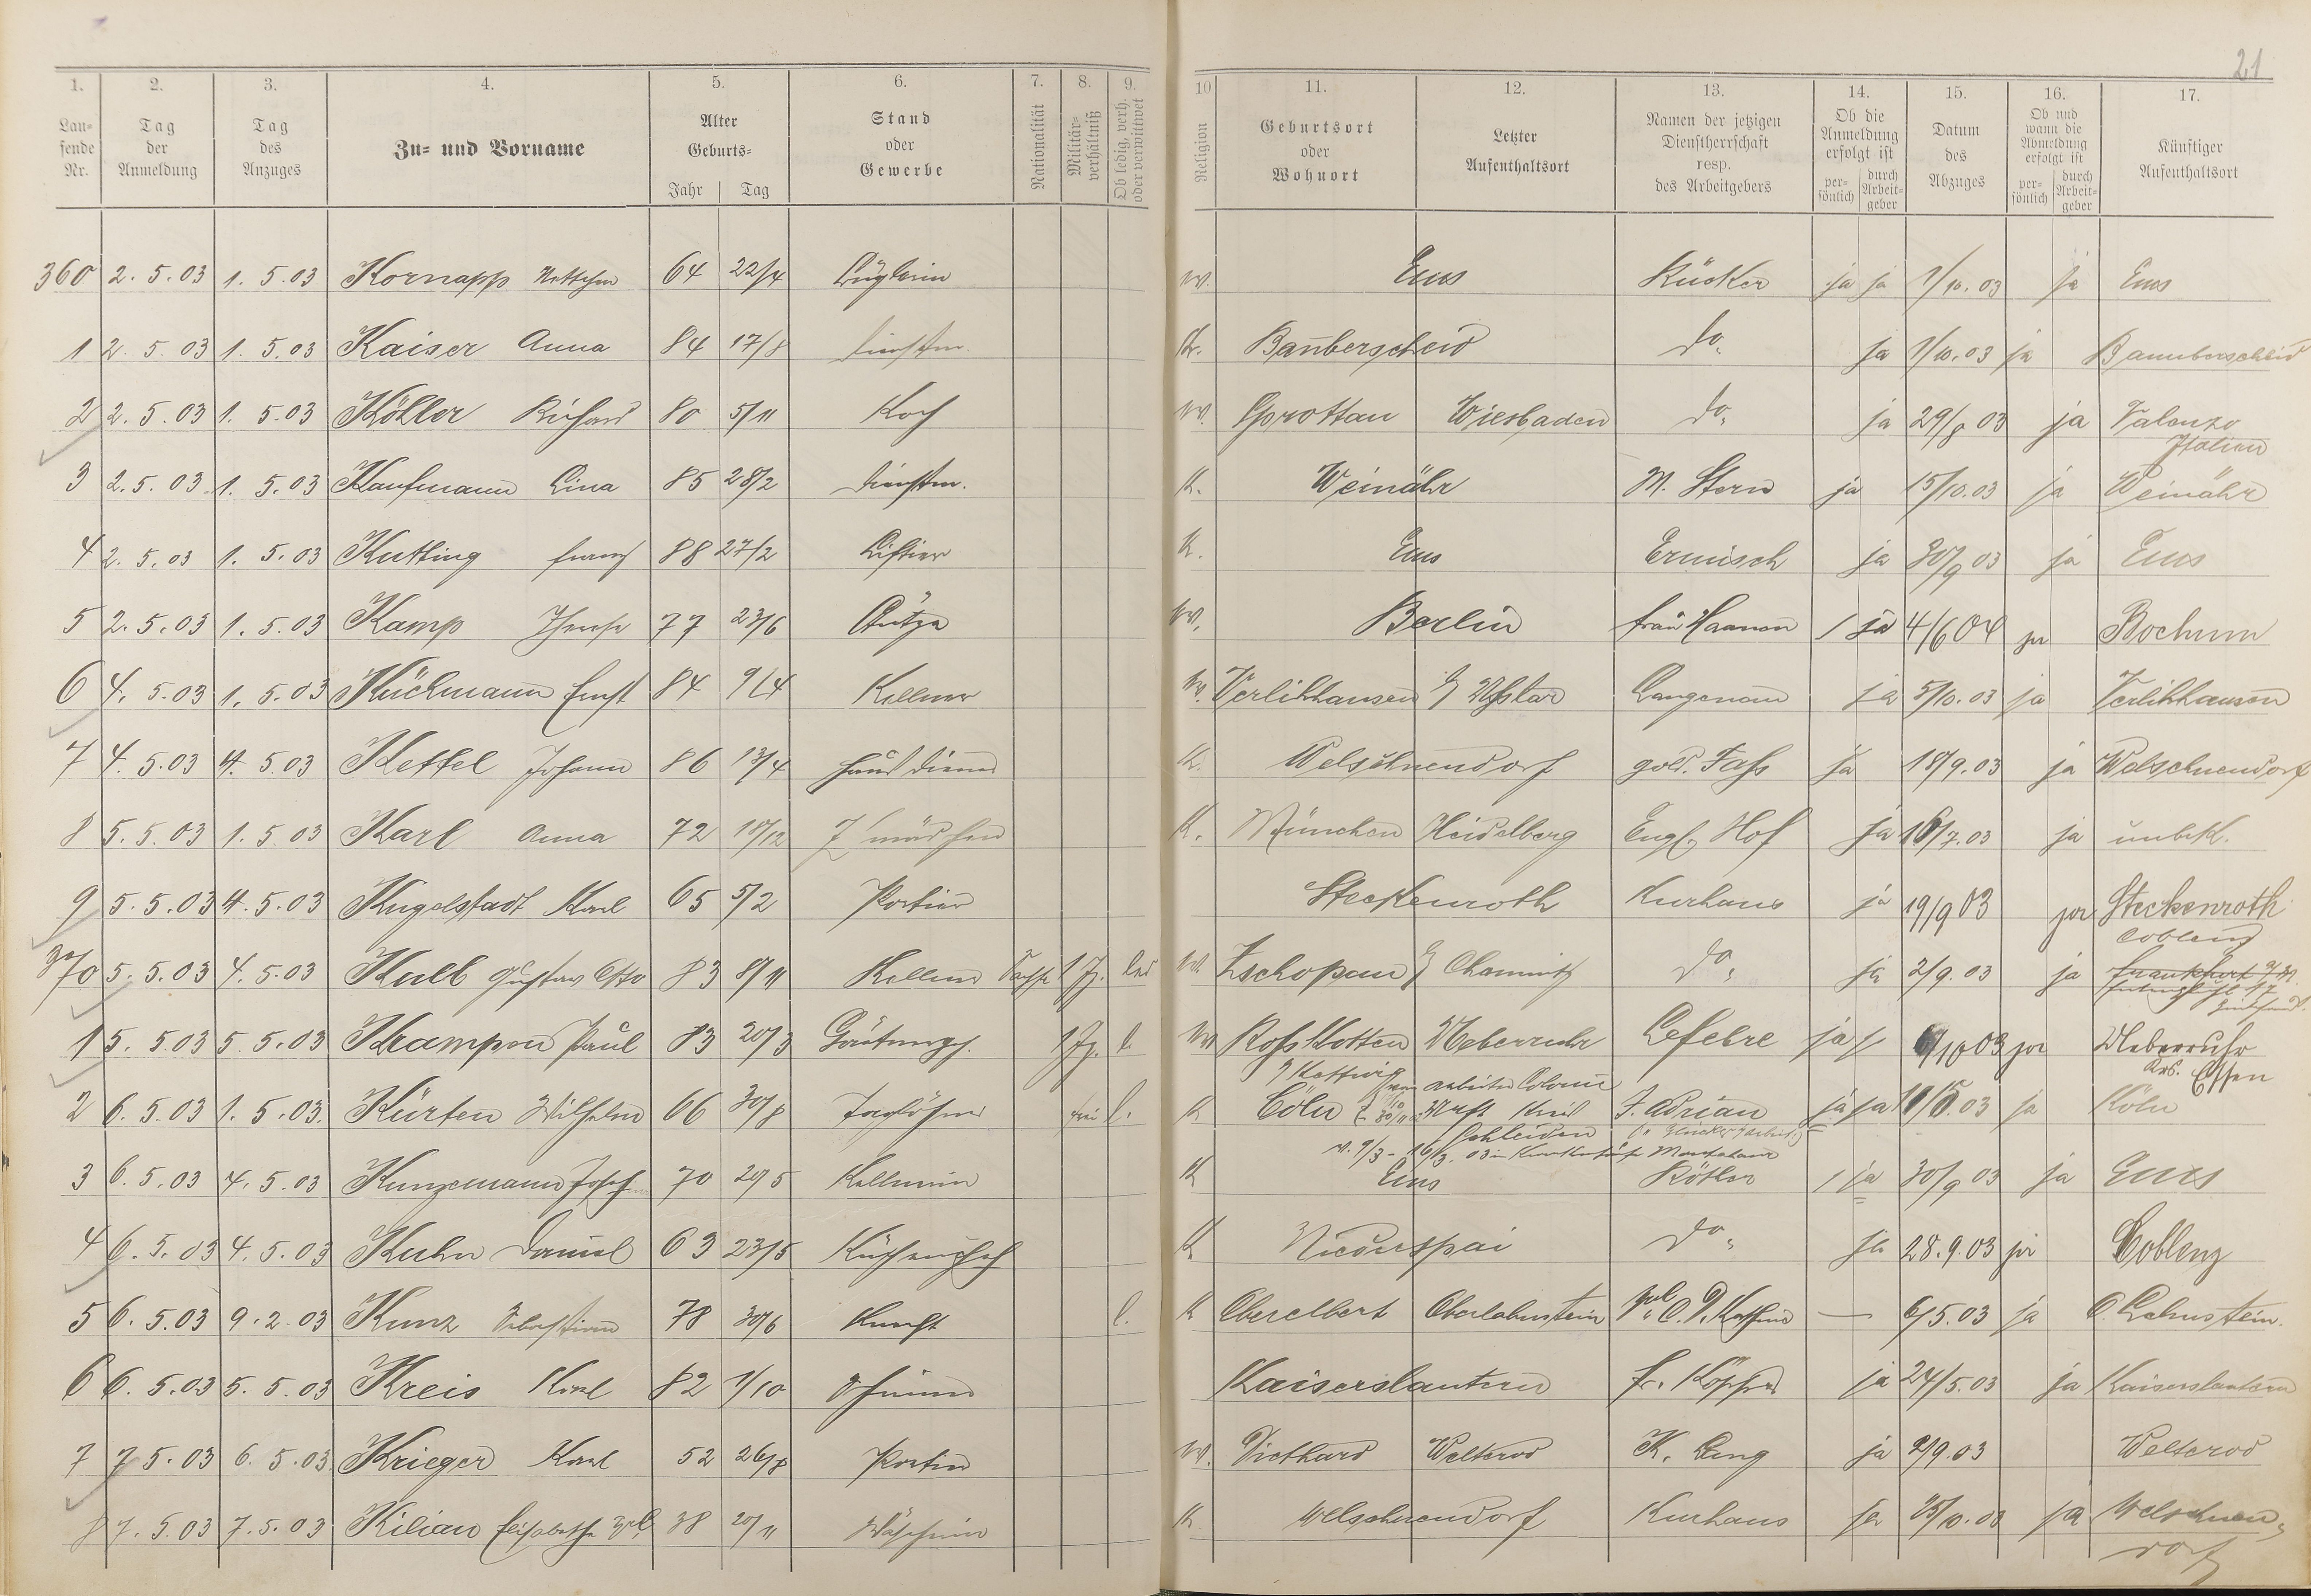 21
1. 2. 3. 4. 5. 6. 7. 8. 9. 10 11. 12. 13. 14. 15. 16. 17.
Lau-
fende
Nr.
Tag
der
Anmeldung
Tag
des
Anzuges
Zu- und Vorname
Alter
Geburts-
Jahr Tag
Stand
oder
Gewerbe
Nationalität
Militär-
verhältniß
Ob ledig, verh.
oder verwittwet
Religion
Geburtsort
oder
Wohnort
Letzter
Aufenthaltsort
Namen der jetzigen
Dienstherrschaft
resp.
des Arbeitgebers
Ob die
Anmeldung
erfolgt ist
per-
sönlich
durch
Arbeit-
geber
Datum
des
Abzuges
Ob und
wann die
Abmeldung
erfolgt ist
per-
sönlich
durch
Arbeit-
geber
Künftiger
Aufenthaltsort
360 2. 5. 03 1. 5. 03 Kornapp 64 22/4 Büglerin Ems Rücker ja ja 1/10. 03 ja Ems
1 2. 5. 03 1. 5. 03 Kaiser Anna 84 17/8 Dienstm. K. Banberscheid do. ja 1/10. 03 ja Bannberscheid
2 2. 5. 03 1. 5. 03 Köhler Richard 80 5/11 Koch Sprottau Wiesbaden do. ja 29/8 03 ja
Italien
3 2. 5. 03 1. 5. 03 Kaufmann Lina 85 28/2 Dienstm. K. Weinähr M. Stern ja 15/10. 03 ja Weinähr
4 2. 5. 03 1. 5. 03 Kutting Franz 88 27/2 Liftier K. Ems Ermisch ja 30/9 03 ja Ems
5 2. 5. 03 1. 5. 03 Kamp Therese 77 23/6 Stütze Berlin Frau ja 4/6 04 ja Bochum
6 4. 5. 03 1. 5. 03 Küchmann Ernst 84 9/4 Kellner Verlihhausen Langenau ja 5/10. 03 ja Verlihhausen
7 4. 5. 03 4. 5. 03 Kettel Johann 86 13/4 Hausdiener K. Welschneudorf gold. Faß ja 18/9. 03 ja Welschneudorf
8 5. 5. 03 1. 5. 03 Karl Anna 72 18/12 Z mädchen K. München Heidelberg Engl. Hof ja 16/7. 03 ja unbek.
9 5. 5. 03 4. 5. 03 Kugelstadt Karl 65 5/2 Portier Steckenroth Kurhaus ja 19/9 03 ja Steckenroth
Coblenz
370 5. 5. 03 4. 5. 03 Kulb Gustav Otto 83 8/11 Kellner led Zschopau Chemnitz do. ja 2/9. 03 ja Frankfurt a/M.
1 5. 5. 03 5. 5. 03 Krampen Paul 83 20/3 Gärtnergeh. l. Roßkotten Ueberruhr Lefebre ja 03 ja Ueberruhr
Kettwig Essen
2 6. 5. 03 1. 5. 03. Kürten Wilhelm 66 30/8 Taglöhner l. K Cöln J. Adrian ja ja 03 ja Köln
Schleiden
3 6. 5. 03 4. 5. 03 Kunzemann 70 29/5 Kellnerin K Ems Rötter ja 30/9 03 ja Ems
4 6. 5. 03 4. 5. 03 Kuhn Daniel 63 23/5 Küchenchef K Niederspai do. ja 28. 9. 03 ja Coblenz
5 6. 5. 03 9. 2. 03 Kunz Sebastian 78 30/6 Knecht l. K Oberelbert Oberlahnstein — 6/5. 03 ja O. Lahnstein.
6 6. 5. 03 5. 5. 03 Kreis Karl 82 1/10 Kaiserslautern ja 24/5. 03 ja Kaiserslautern
7 7 5. 03 6. 5. 03 Krieger Karl 52 26/8 Portier Diethard Welterod K. Leng ja 2/9. 03 Welterod
8 7. 5. 03 7. 5. 03 Kilian Elisabetha 38 20/11 Wäscherin K. Welschneudorf Kurhaus ja 15/10. 03 ja Welschneu-
dorf